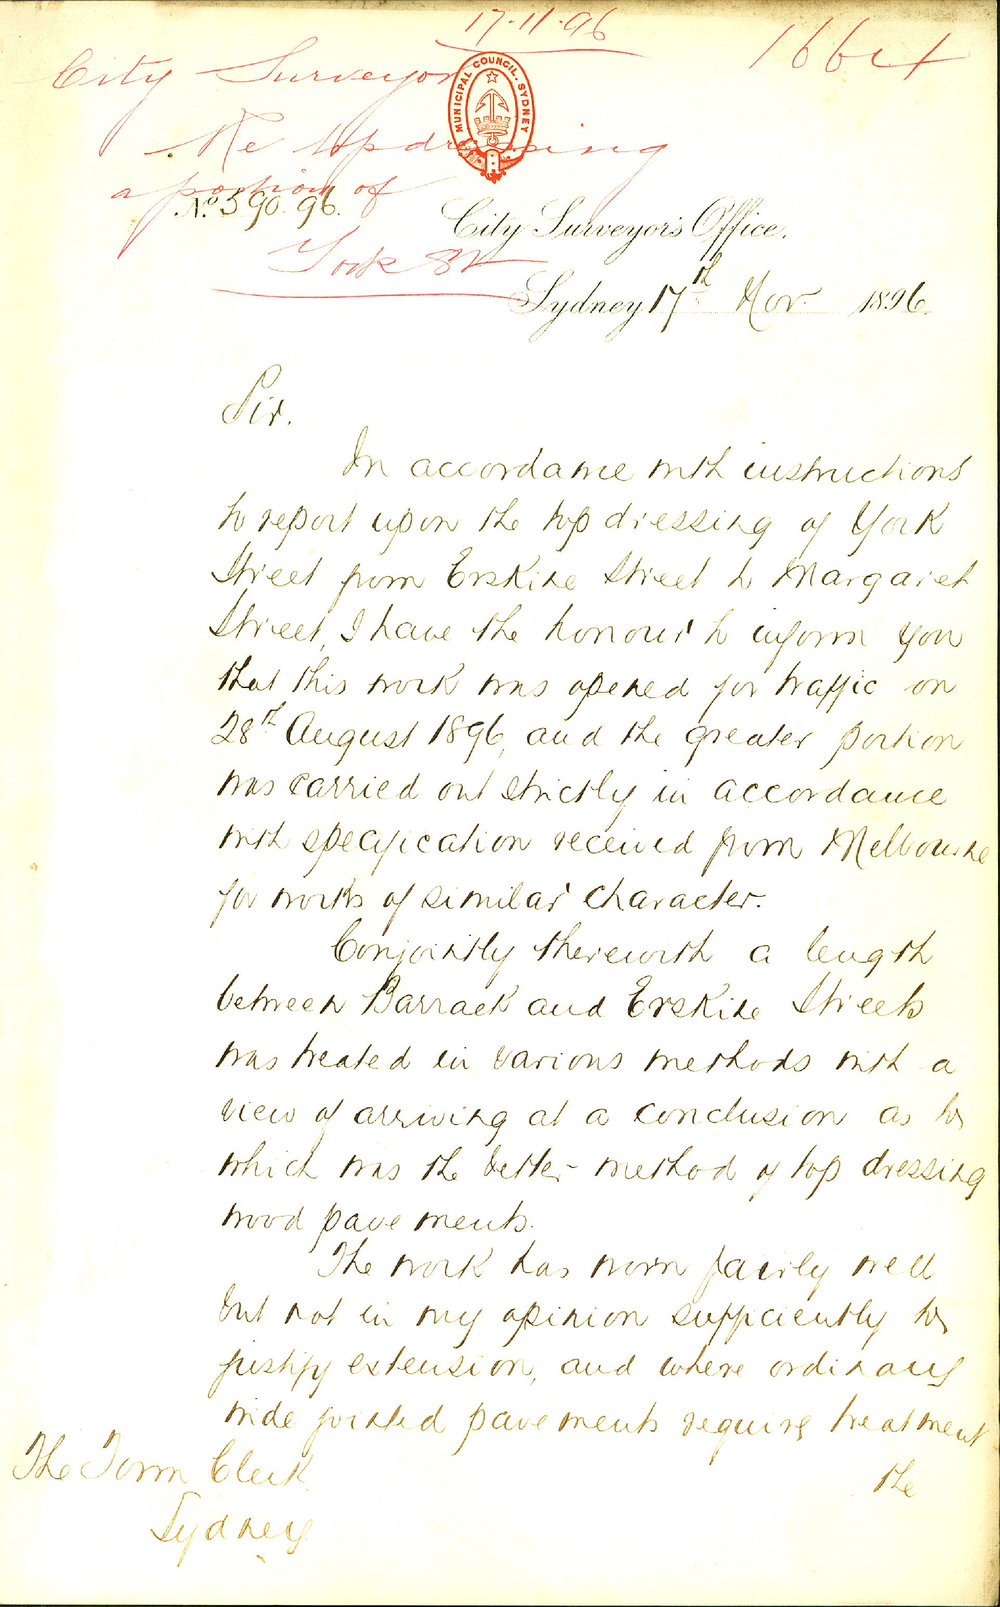 17.11.96
City Surveyor
Re top dressing
a portion of
York St
MUNICIPAL COUNCIL. SYDNEY
No. 590.96.
City Surveyor's Office.
Sydney 17th Nov. 1896.
Sir.
In accordance with instructions
to report upon the top dressing of York
Street from Erskine Street to Margaret
Street, I have the honour to inform you
that this work was opened for traffic on
28th August 1896, and the greater portion
was carried out strictly in accordance
with specification received from Melbourne
for works of similar character.
Conjointly therewith a length
between Barrack and Erskine Streets
was treated in various methods with a
view of arriving at a conclusion as to
which was the better method of top dressing
wood pavements.
The work has worn fairly well
but not in my opinion sufficiently to
justify extension, and where ordinary
wide jointed pavements require treatment
the
The Town Clerk
Sydney